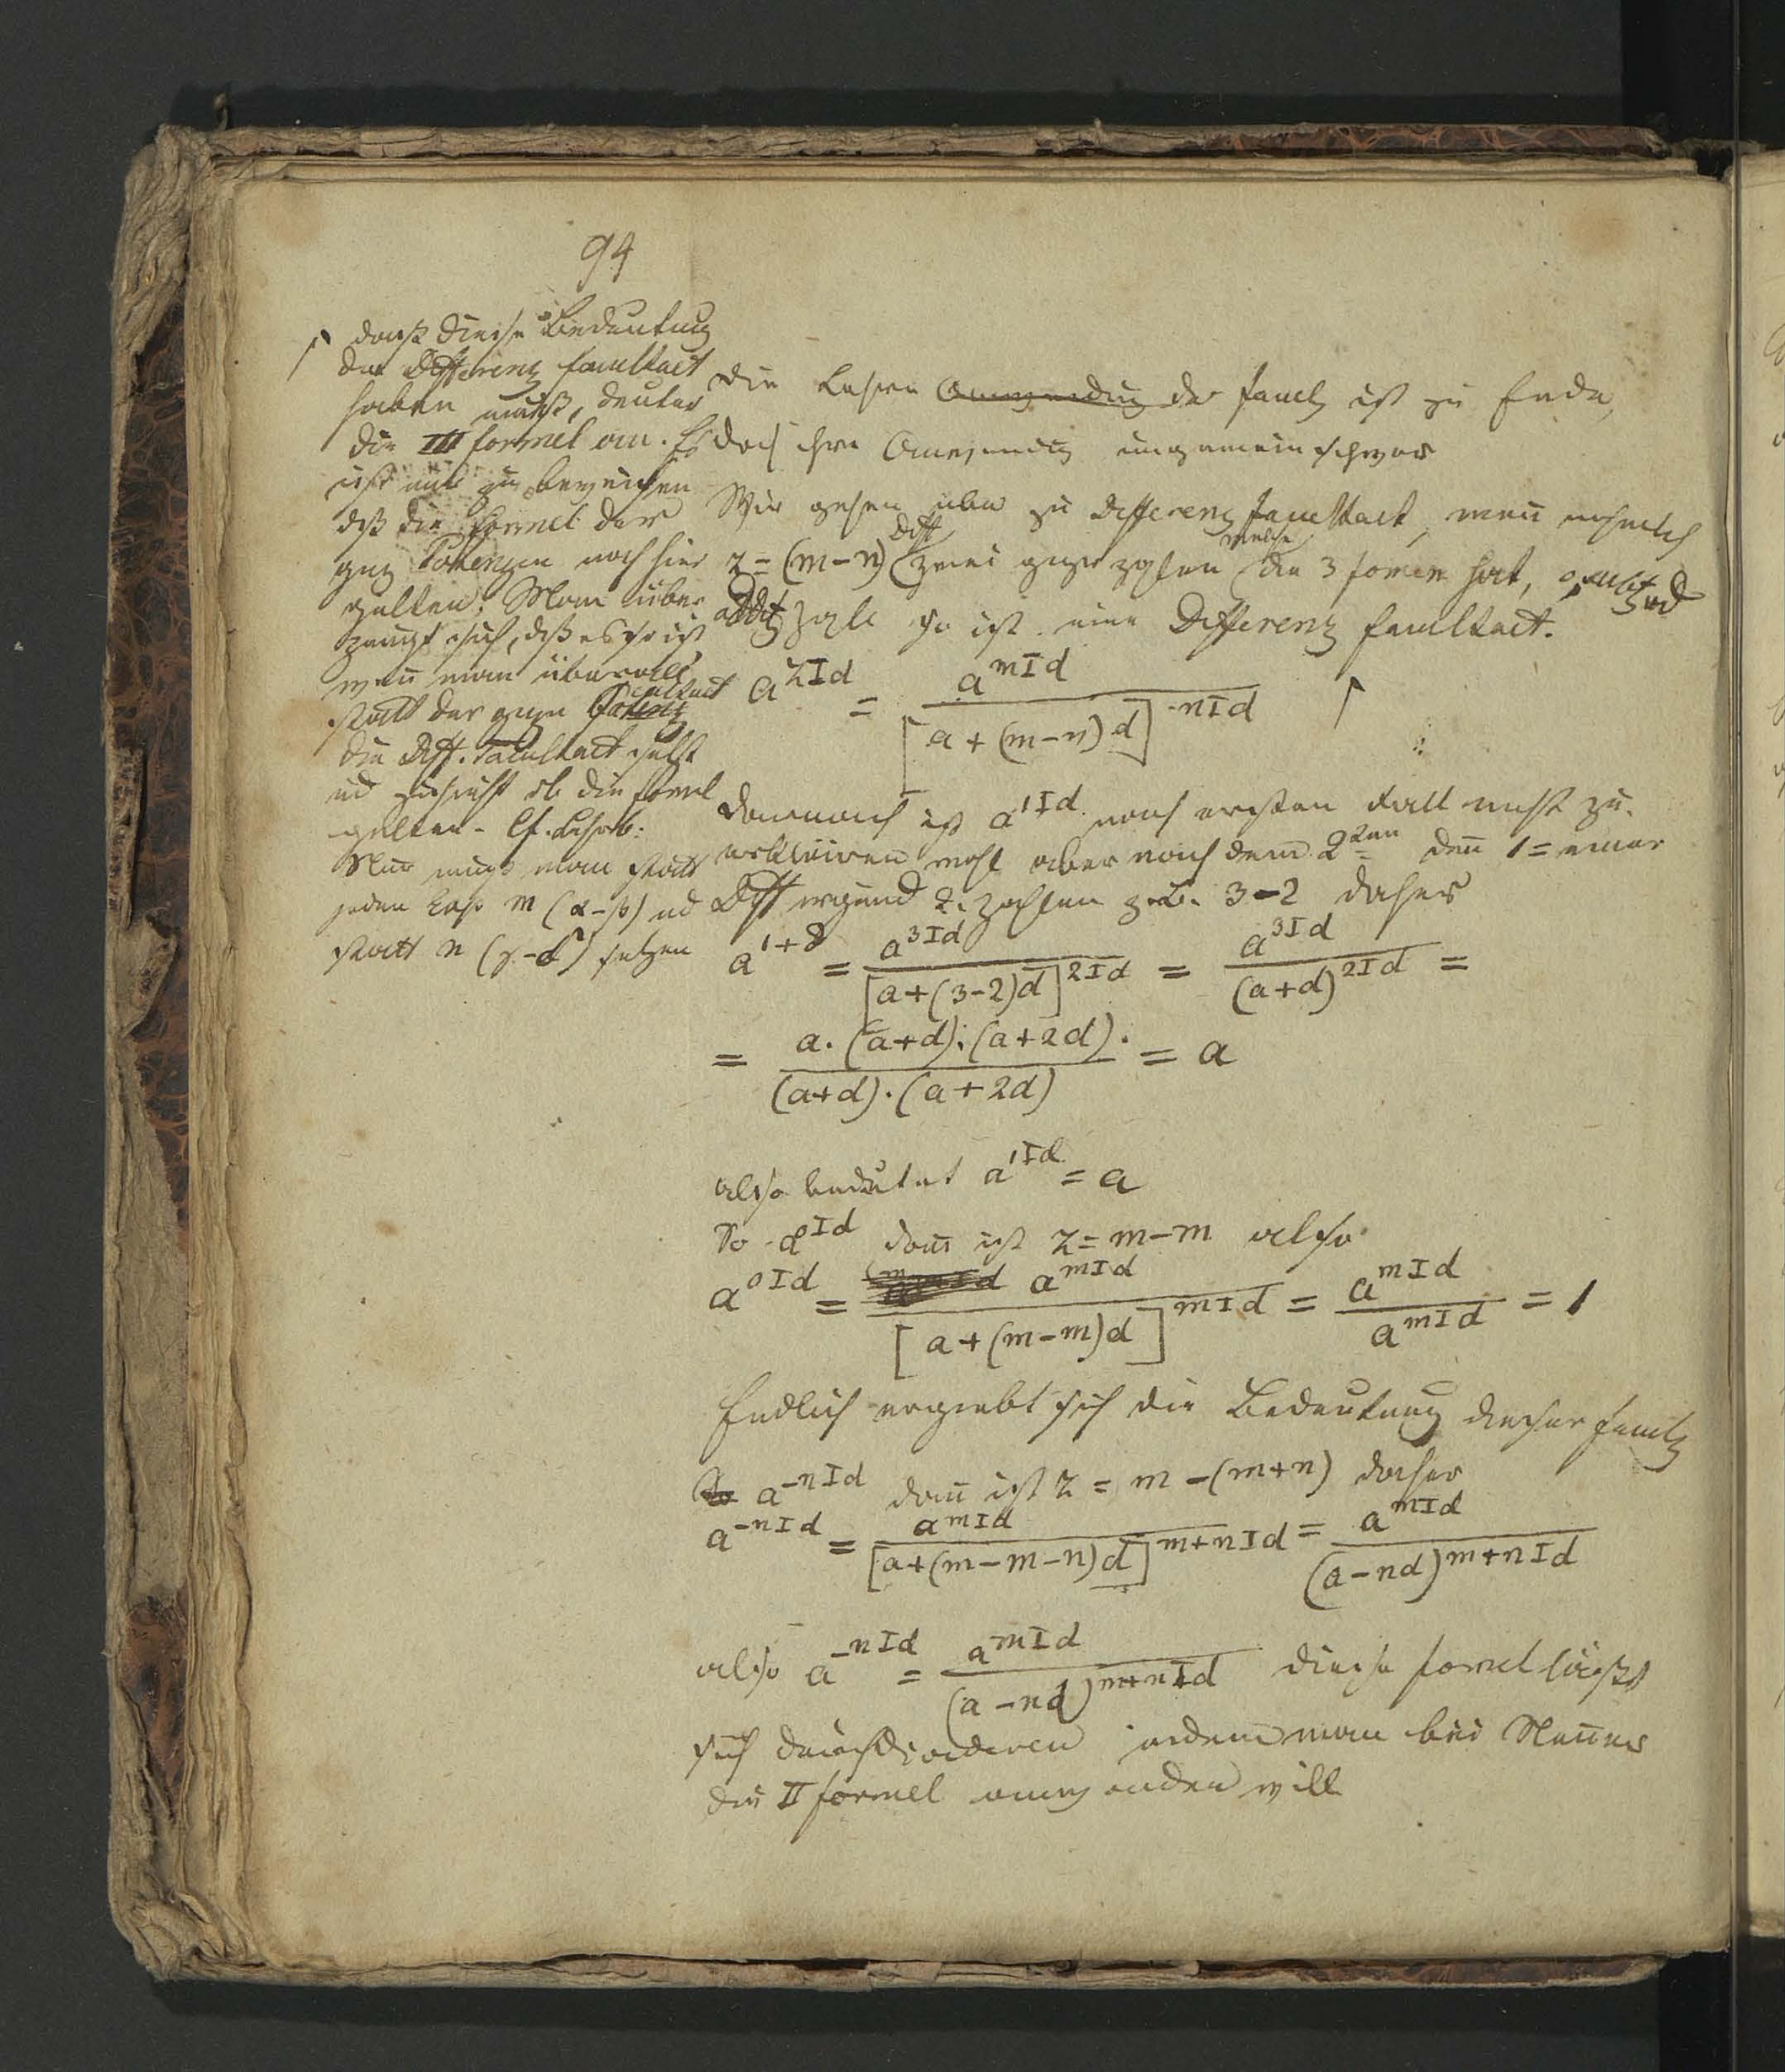 94
↾ daß diese Bedeutung
der Differenz facultaet
haben muß, deutet
die III formel an. Es
ist nur zu beweisen
dß die formel der
gnz Potenzen noch hier
gelten. Man über
zeugt sich, dß es so ist
weñ man überall
statt der gnzn facultaet
die Diff. facultaet setzt
ud zusieht ob die formel
gelten. cf. Lehrb:
Nur muß man statt
jeden Exp m (α-β) ud
statt n (γ-δ) setzen
Die Lehre Anwendung der facult ist zu Ende,
doch ihre Anwendung ungemein schwer
Wir gehen über zu Differenz facultaet, weñ nehmlich
z = (m-n) Diff zweier gnzer zahlen welche die 3 formen hat,
addit zahl so ist eine Differenz facultaet.
a^zId = a^mId / [a+(m-n)d]^nId ↾
Darnach ist a^1Id nach ersten Fall nicht zu
erklären wohl aber nach dem 2ten deñ 1 = einer
Diff irgend 2. zahlen z.B. 3-2 daher
a^1+d = a^3Id / [a+(3-2)d]^2Id = a^3Id / (a+d)^2Id =
= a.(a+d).(a+2d). / (a+d).(a+2d) = a
also bedeutet a^1Id = a
So a^0Id dañ ist z = m-m also
a^0Id = a^mId / [a+(m-m)d]^mId = a^mId / a^mId = 1
Endlich ergiebt sich die Bedeutung dieser facult
a^-nId dañ ist z = m-(m+n) daher
a^-nId = a^mId / [a+(m-m-n)d]^m+nId = a^mId / (a-nd)^m+nId
also a^-nId = a^mId / (a-nd)^m+nId diese formel läßt
sich indem man bei Neñer
die II formel anwenden will